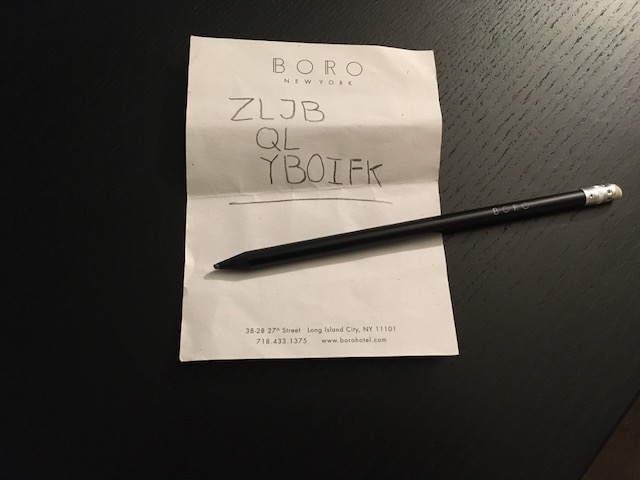 BORO
NEW YORK
ZLJB
QL
YBOIFK
BORO
38-28 27th Street Long Island City, NY 11101
718.433.1375 www.borohotel.com